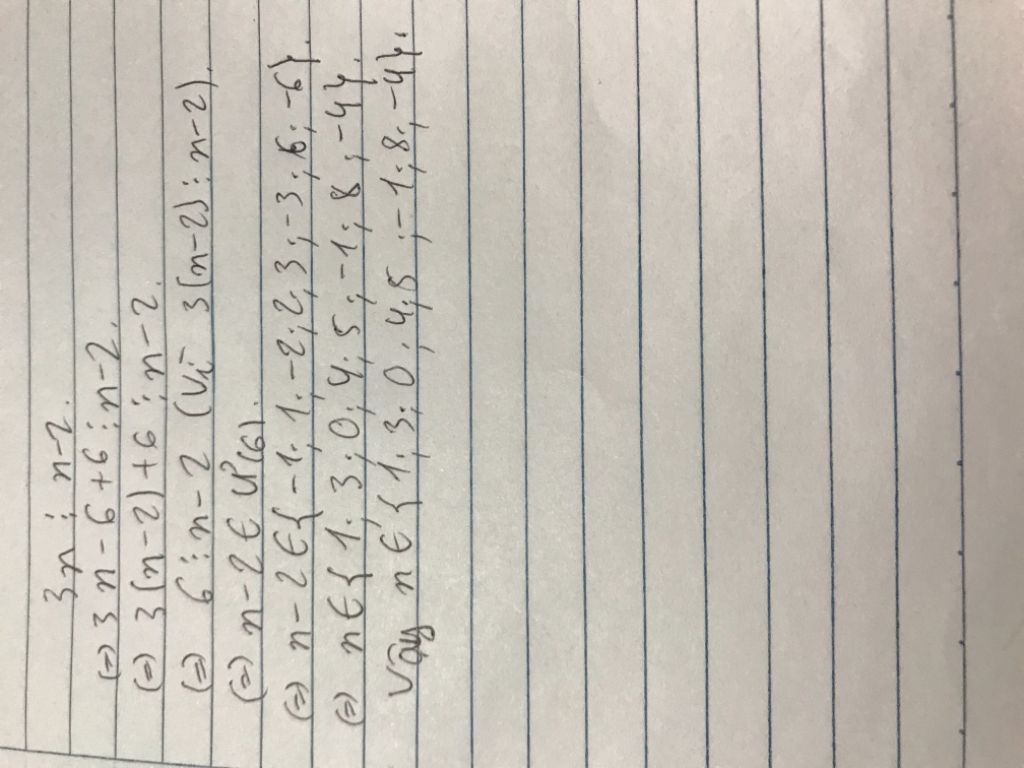 3n ⋮ n-2.
(=) 3n-6+6 ⋮ n-2.
(=) 3(n-2)+6 ⋮ n-2.
(=) 6 ⋮ n-2 (vì 3(n-2) ⋮ n-2).
(=) n-2 ∈ Ư(6).
(=) n-2 ∈ {-1; 1; -2; 2; 3; -3; 6; -6}.
(=) n ∈ {1; 3; 0; 4; 5; -1; 8; -4}.
Vậy n ∈ {1; 3; 0; 4; 5; -1; 8; -4}.